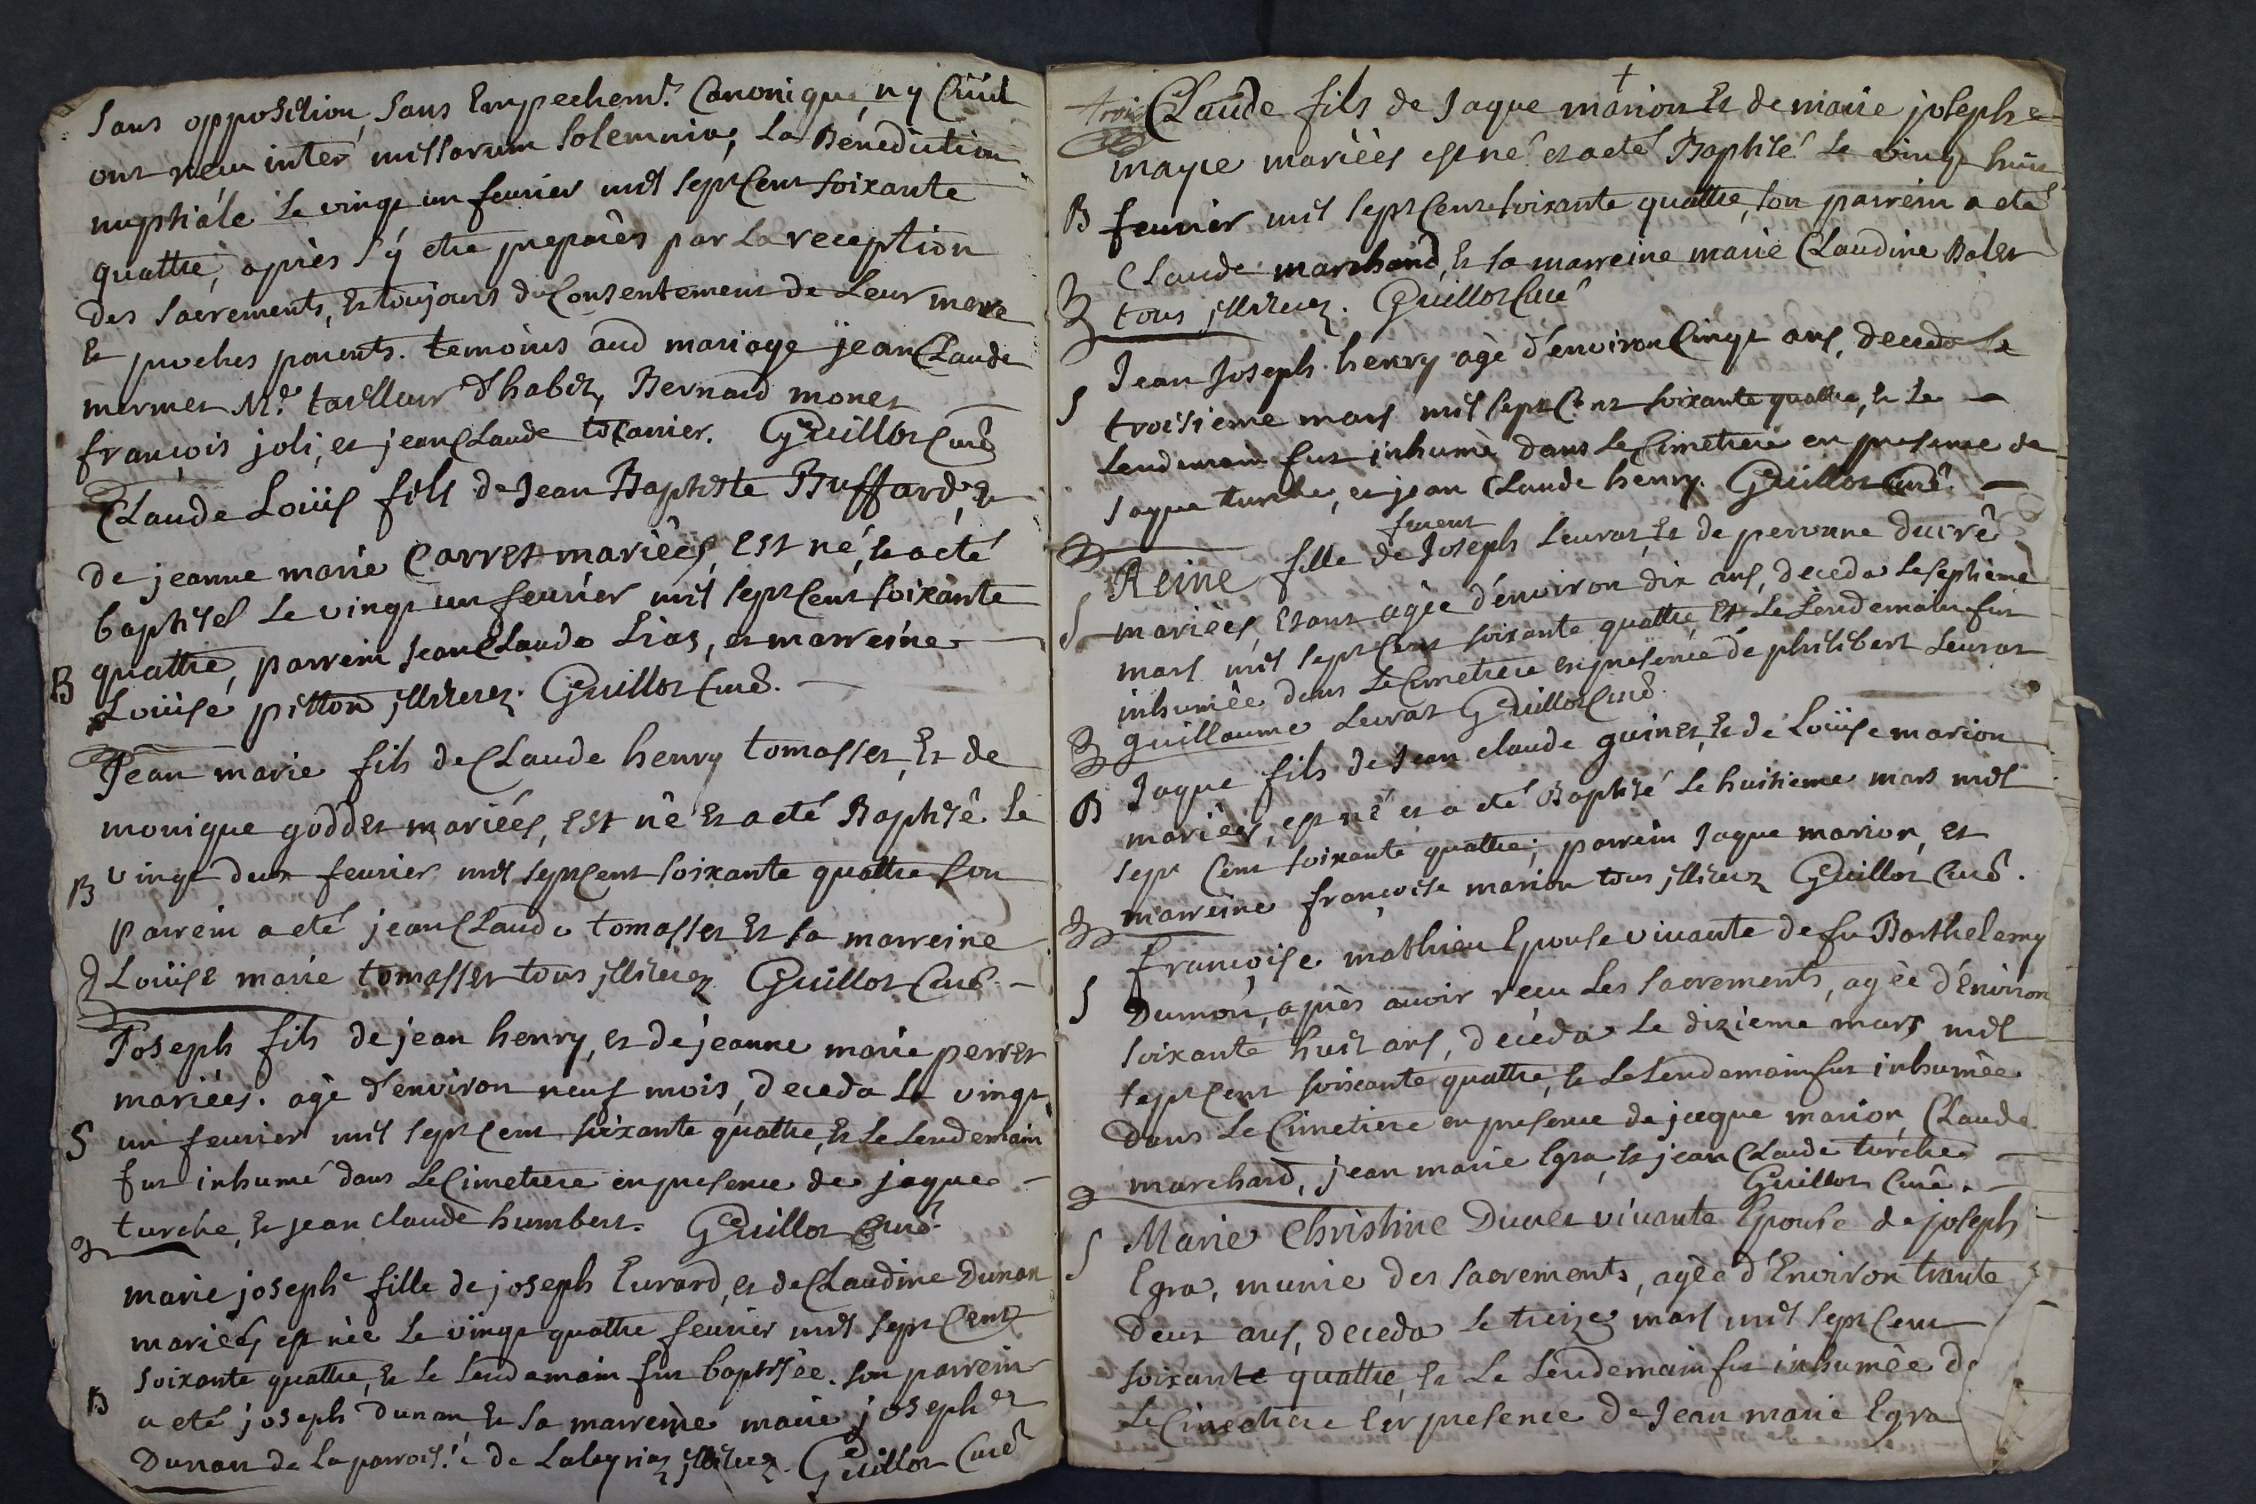 Sans opposition, sans Empechemt. Canonique, ny Civil
ont recu inter missarum solemnia, La Bénediction
nuptiále le vingt un fevrier mil sept Cent soixante
quattre, après s'ÿ etre preparès par La reception
des sacrements, Et toujours du Consentement de Leur mere
Et proches parents. temoins aud mariage jean Claude
mermet Me. tailleur d'habit, Bernard monet
françois joli, et jean Claude tocanier. Guillot Curé
Claude Loüis fils de Jean Baptiste Buffard, Et
de jeanne marie Carret mariées, Est né, Et a eté
baptisé Le vingt un fevrier mil sept Cent soixante
B quattre, parrein Jean Claude Lias, et marreine
Loüise pitton illiterez. Guillot Curé.
Jean marie fils de Claude henry tomasset, Et de
monique goddet mariées, Est né Et a eté Baptisé Le
B vingt deux fevrier mil sept Cent soixante quattre son
parrein a eté jean Claude tomasset Et sa marreine
Loüise marie tomasset tous illiterez Guillot Curé.
Joseph fils de jean henry, et de jeanne marie perret
mariées. agé d'environ neuf mois, deceda le vingt
S un fevrier mil sept Cent soixante quattre, Et le Lendemain
fut inhumé dans Le Cimetiere en presence de jaque
turche, Et jean Claude humbert. Guillot Curé.
marie josephe fille de joseph Evrard, et de Claudine Dunan
mariées est née Le vingt quattre fevrier mil sept Cent
soixante quattre, Et Le Lendemain fut baptisée. son parrein
B a eté joseph Dunan Et sa marreine marie josephte
Dunan de La parois.e de Laleyriaz illiterez. Guillot Curé
trois Claude fils de Jaque marion Et de marie josephe
mayre mariées est né et a eté Baptisé Le vingt huit
B fevrier mil sept Cent soixante quattre, son parrein a eté
Claude marchand, Et sa marreine marie Claudine Balet
tous illiterez. Guillot Curé
Jean Joseph henry agé d'environ Cinqt ans, deceda le
S troisieme mars mil sept Cent soixante quattre, Et Le
Lendemain fut inhumé dans Le Cimetiere en presence de
Jaque turche, et jean Claude henry. Guillot Curé.
furent
Reine fille de Joseph Levrat, Et de perronne ducré
S mariées, Etant agée d'environ dix ans, deceda Le septieme
mars mil sept Cent soixante quattre Et Le Lendemain fut
inhumée dans Le Cimetiere en presence de philibert Levrat
guillaume Levrat Guillot Curé.
B Jaque fils de Jean claude guinet, Et de Loüise marion
mariées, est né et a eté Baptisé Le huitieme mars mil
sept Cent soixante quattre; parrein Jaque marion, et
marreine françoise marion tous illiterez Guillot Curé.
françoise mathieu Epouse vivante de fu Barthelemy
S Dumon, après avoir recu Les sacrements, agée d'Environ
soixante huit ans, décéda Le dizieme mars mil
sept Cent soixante quattre, Et Le Lendemain fut inhumée
dans Le Cimetiere en presence de jaque marion, Claude
marchand, jean marie Egra, Et jean Claude turche
Guillot Curé.
S Marie Christine Ducret vivante Epouse de joseph
Egra, munie des sacrements, agée d'Environ trante
deux ans, deceda Le treize mars mil sept Cent
soixante quattre, Et Le Lendemain fut inhumée d
Le Cimetiere En presence de Jean marie Egra